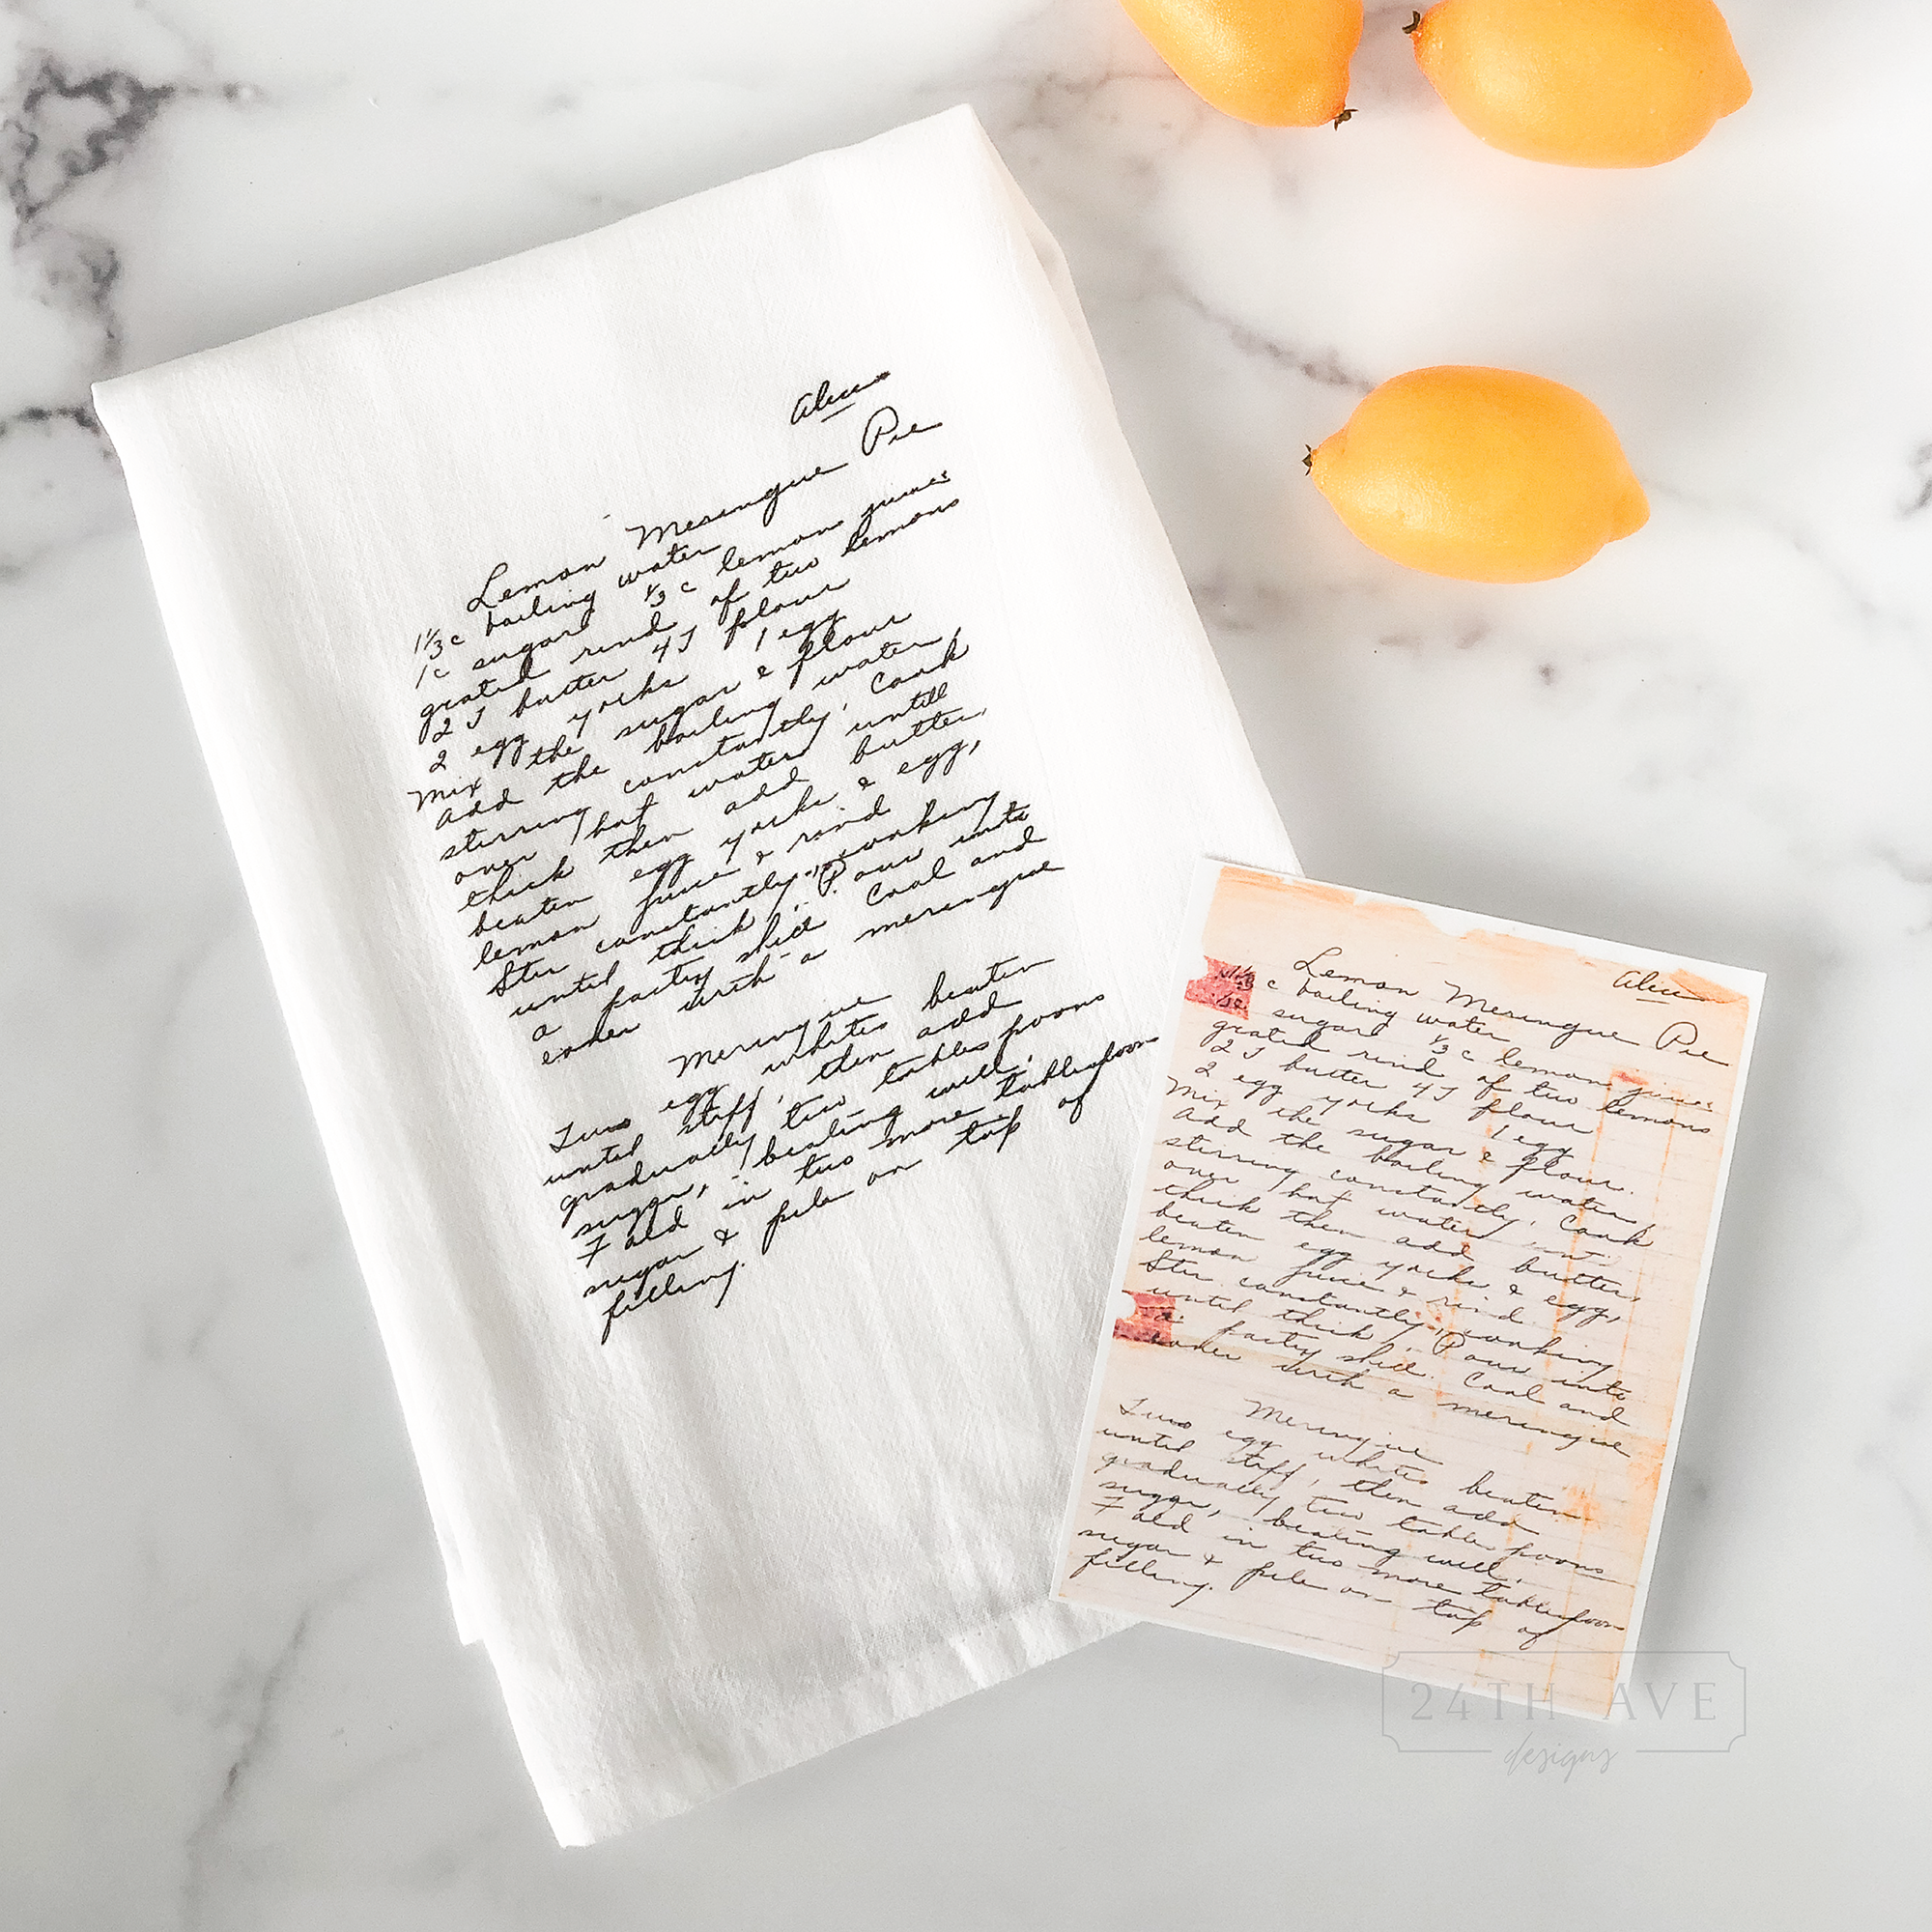 Alice
Lemon Meringue Pie
1 1/3 c boiling water
1c sugar 1/3 c lemon juice
grated rind of two lemons
2 T butter 4T flour
2 egg yorks 1 egg
Mix the sugar & flour
Add the boiling water,
stirring constantly. Cook
over hot water until
thick then add butter,
beaten egg yorks & egg,
lemon juice & rind
Stir constantly, cooking
until thick. Pour into
a pastry shell Cool and
cover with a meringue
Meringue
Two egg whites beaten
until stiff, then add
gradually two tablespoons
sugar, beating well.
Fold in two more tablespoons
sugar & pile on top of
filling.
Alice
Lemon Meringue Pie
1 1/3 c boiling water
1c sugar 1/3 c lemon juice
grated rind of two lemons
2 T butter 4T flour
2 egg yorks 1 egg
Mix the sugar & flour.
Add the boiling water,
stirring constantly. Cook
over hot water unt
thick then add butter,
beaten egg yorks & egg,
lemon juice & rind
Stir constantly, cooking
until thick. Pour into
a pastry shell. Cool and
cover with a meringue
Meringue
Two egg whites beaten
until stiff, then add
gradually two tablespoons
sugar, beating well.
Fold in two more tablespoons
sugar & pile on top of
filling.
24TH AVE
designs